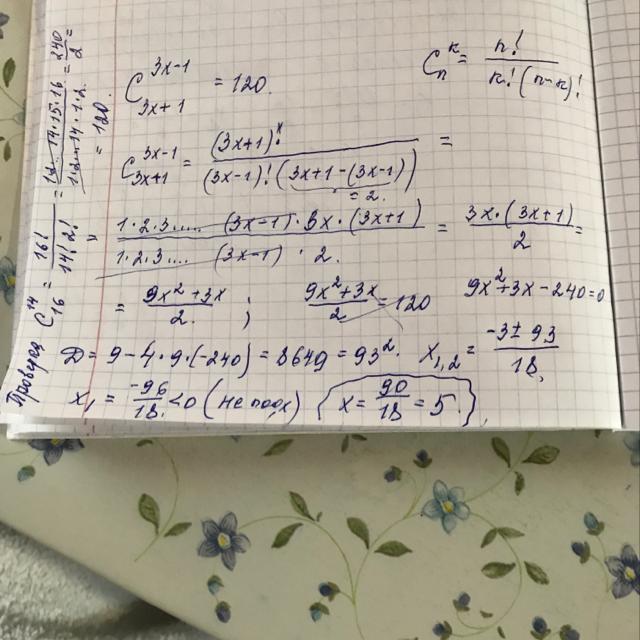 C_{3x+1}^{3x-1} = 120.
C_n^k = n! / k!(n-k)!
C_{3x+1}^{3x-1} = (3x+1)! / (3x-1)!(3x+1-(3x-1)) =
= 2.
= 1·2·3..... (3x-1)·3x·(3x+1) / 1·2·3.... (3x-1)·2. = 3x·(3x+1) / 2 =
= 9x²+3x / 2. ; 9x²+3x / 2 = 120 9x²+3x-240=0
D = 9-4·9·(-240) = 8649 = 93². x_{1,2} = -3±93 / 18.
x₁ = -96 / 18 <0 (не подх) x = 90 / 18 = 5.
Проверка C_{16}^{14} = 16! / 14!2! = 1·2·...14·15·16 / 1·2·...14·1·2 = 240 / 2 =
= 120.